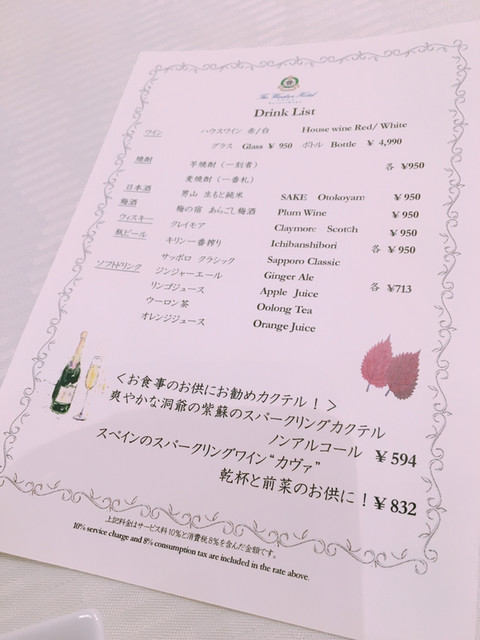 The Windsor Hotel
Drink List
ワイン ハウスワイン 赤/白 House wine Red/ White
グラス Glass ¥ 950 ボトル Bottle ¥ 4,990
焼酎 芋焼酎（一刻者） 各 ¥950
麦焼酎（一番札）
日本酒 男山 生もと純米 SAKE Otokoyama ¥ 950
梅酒 梅の宿 あらごし梅酒 Plum Wine ¥ 950
ウィスキー クレイモア Claymore Scotch ¥ 950
瓶ビール キリン一番搾り Ichibanshibori 各 ¥ 950
サッポロ クラシック Sapporo Classic
ソフトドリンク ジンジャーエール Ginger Ale 各 ¥713
リンゴジュース Apple Juice
ウーロン茶 Oolong Tea
オレンジジュース Orange Juice
＜お食事のお供にお勧めカクテル！＞
爽やかな洞爺の紫蘇のスパークリングカクテル
ノンアルコール ¥ 594
スペインのスパークリングワイン“カヴァ”
乾杯と前菜のお供に！¥ 832
上記料金はサービス料10%と消費税8%を含んだ金額です。
10% service charge and 8% consumption tax are included in the rate above.